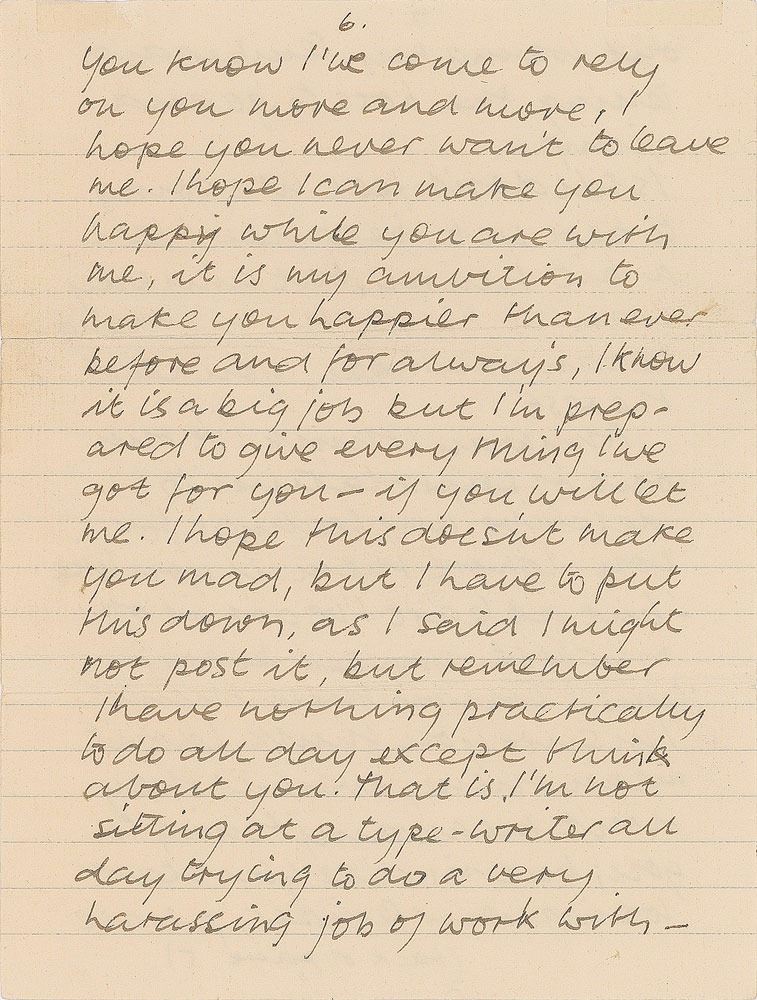 6.
You know I've come to rely
on you more and more, I
hope you never want to leave
me. I hope I can make you
happy while you are with
me, it is my ambition to
make you happier than ever
before and for always, I know
it is a big job but I'm prep-
ared to give every thing I've
got for you – if you will let
me. I hope this doesn't make
you mad, but I have to put
this down, as I said I might
not post it, but remember
I have nothing practically
to do all day except think
about you. That is, I'm not
sitting at a type-writer all
day trying to do a very
harassing job of work with –